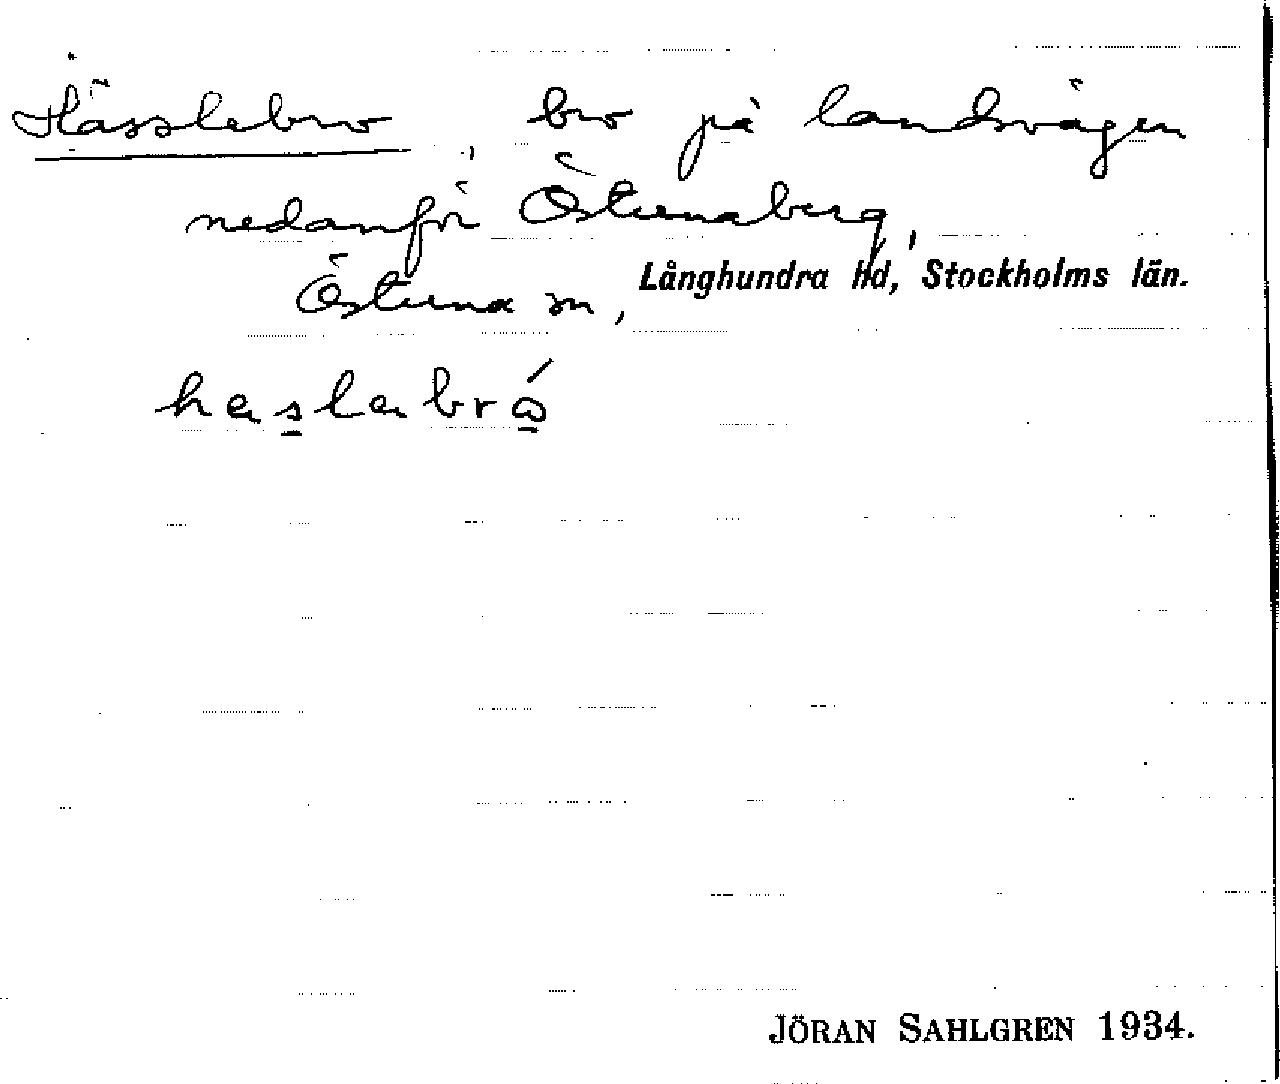 Hässlebro, bro på landsvägen
nedanför Östunaberg,
Östuna sn, Långhundra hd, Stockholms län.
haslabró
JÖRAN SAHLGREN 1934.